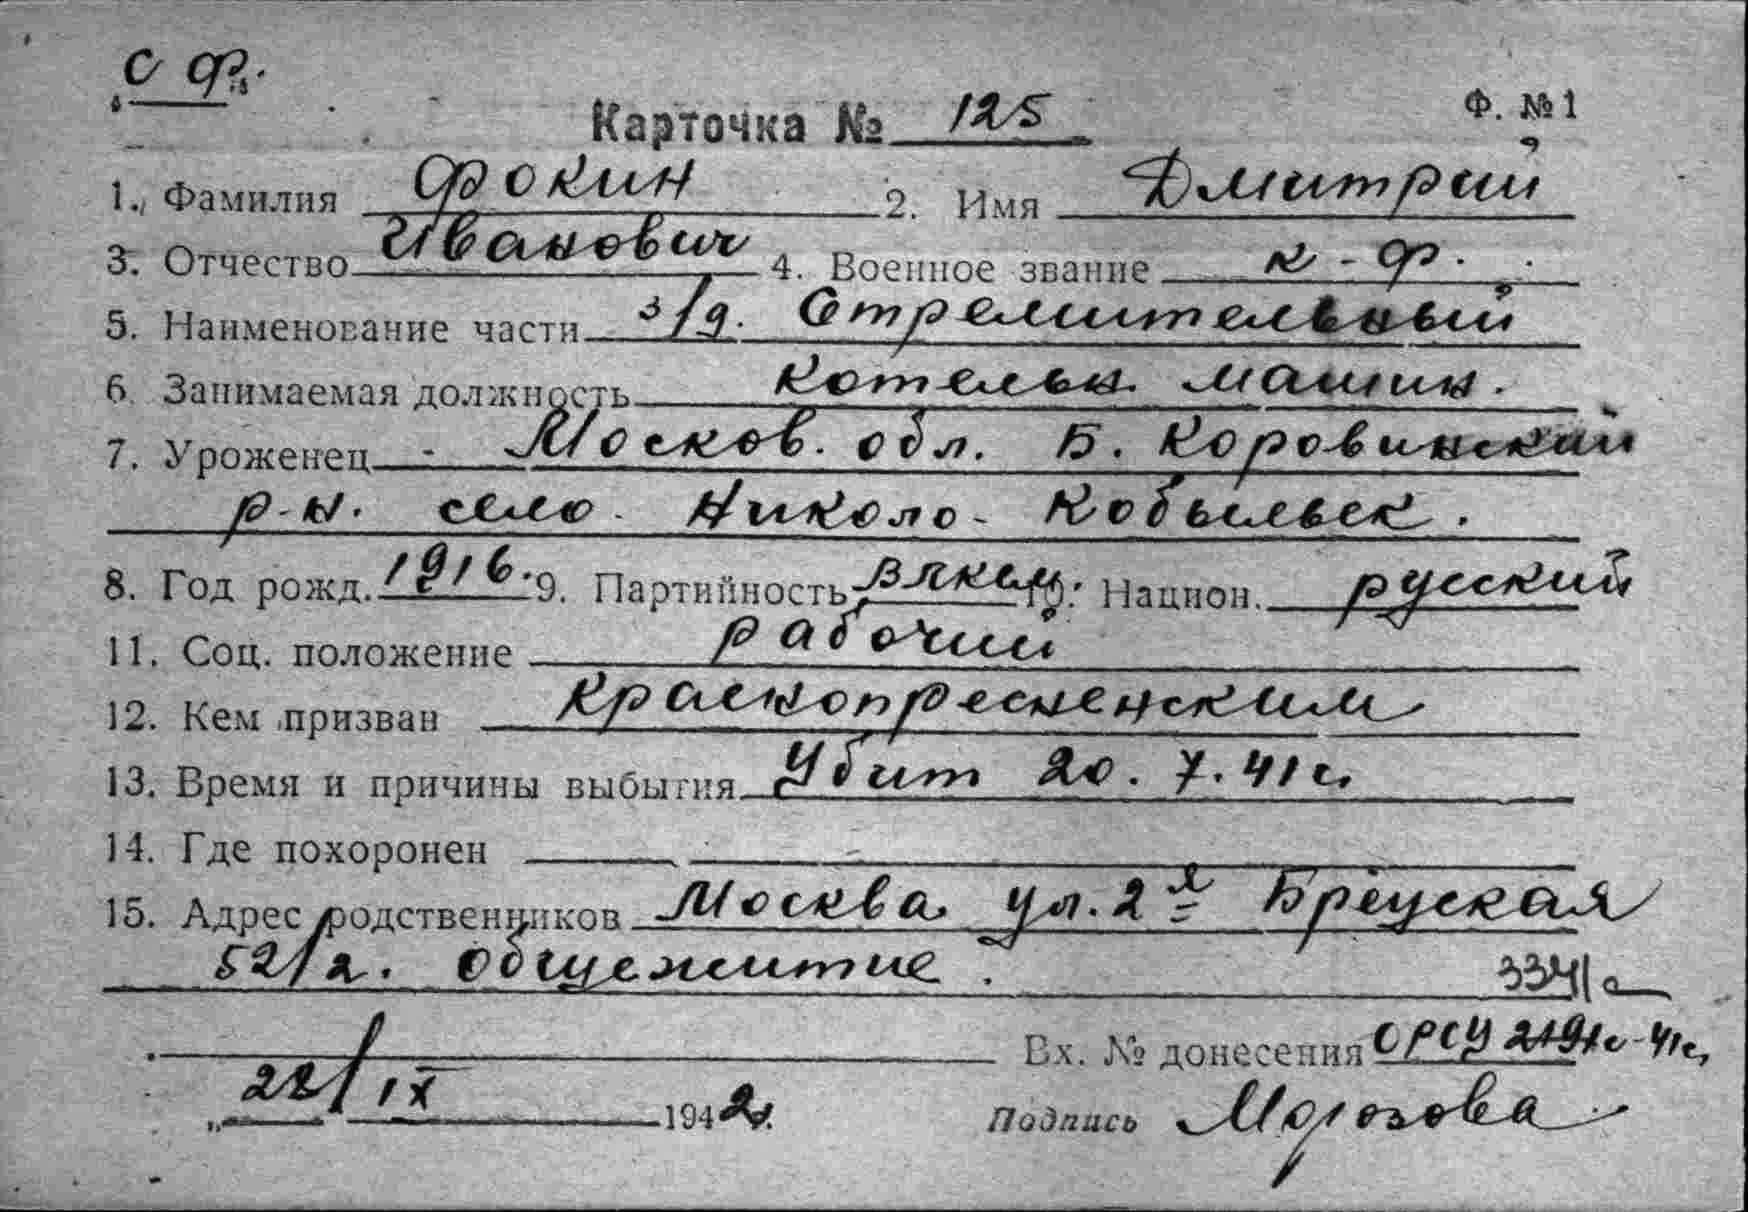 С Ф.
Карточка № 125 Ф. № 1
1. Фамилия Фокин 2. Имя Дмитрий
3. Отчество Иванович 4. Военное звание к-ф.
5. Наименование части э/д. Стремительный
6. Занимаемая должность котельн. машин.
7. Уроженец - Москов. обл. Б. Коровинский
р-н. село Николо-Кобыльск.
8. Год рожд. 1916. 9. Партийность ВЛКСМ. 10. Национ. русский
11. Соц. положение рабочий
12. Кем призван Краснопресненским
13. Время и причины выбытия Убит 20. 7. 41г.
14. Где похоронен
15. Адрес родственников Москва ул. 2я Бреуская
52/2. общежитие.
3341с
Вх. № донесения ОРСУ 2191с-41г.
28/IX 1942г.
Подпись Морозова